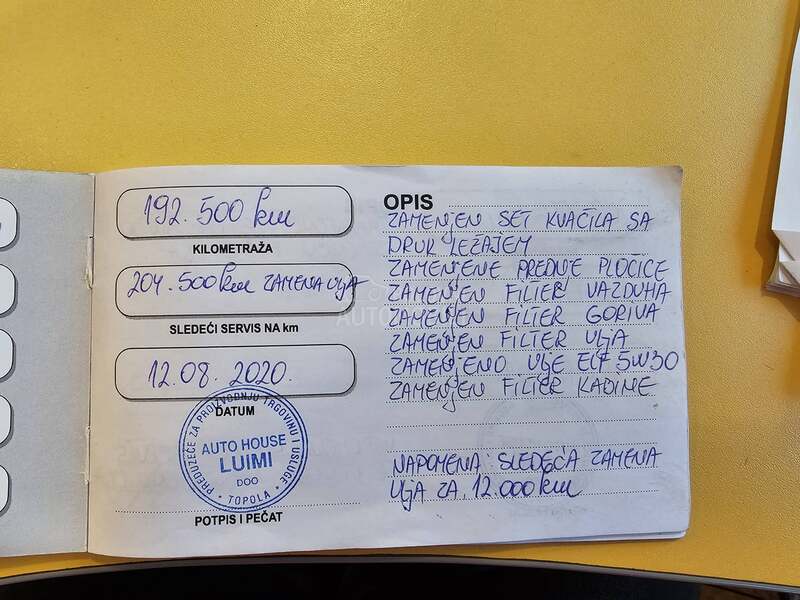 192.500 km
KILOMETRAŽA
204.500 km ZAMENA ULJA
SLEDEĆI SERVIS NA km
12.08.2020.
DATUM
PREDUZEĆE ZA PROIZVODNJU TRGOVINU I USLUGE
AUTO HOUSE
LUIMI
DOO
TOPOLA
POTPIS I PEČAT
OPIS
ZAMENJEN SET KVAČILA SA
DRUK LEŽAJEM
ZAMENJENE PREDNJE PLOČICE
ZAMENJEN FILTER VAZDUHA
ZAMENJEN FILTER GORIVA
ZAMENJEN FILTER ULJA
ZAMENJENO ULJE ELF 5W30
ZAMENJEN FILTER KABINE
NAPOMENA: SLEDEĆA ZAMENA
ULJA ZA 12.000 km